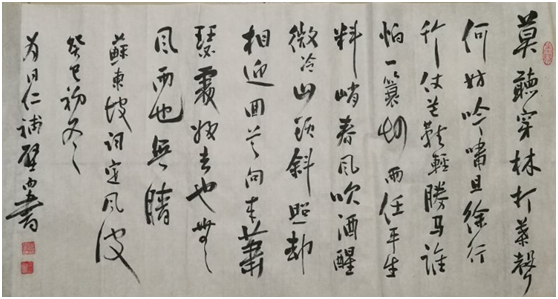 莫聽穿林打葉聲
何妨吟嘯且徐行
竹杖芒鞋輕勝马誰
怕一蓑烟雨任平生
料峭春風吹酒醒
微冷山頭斜照却
相迎回首向來蕭
瑟處归去也無
風雨也無晴
蘇東坡词定風波
癸巳初冬
日仁補壁 書